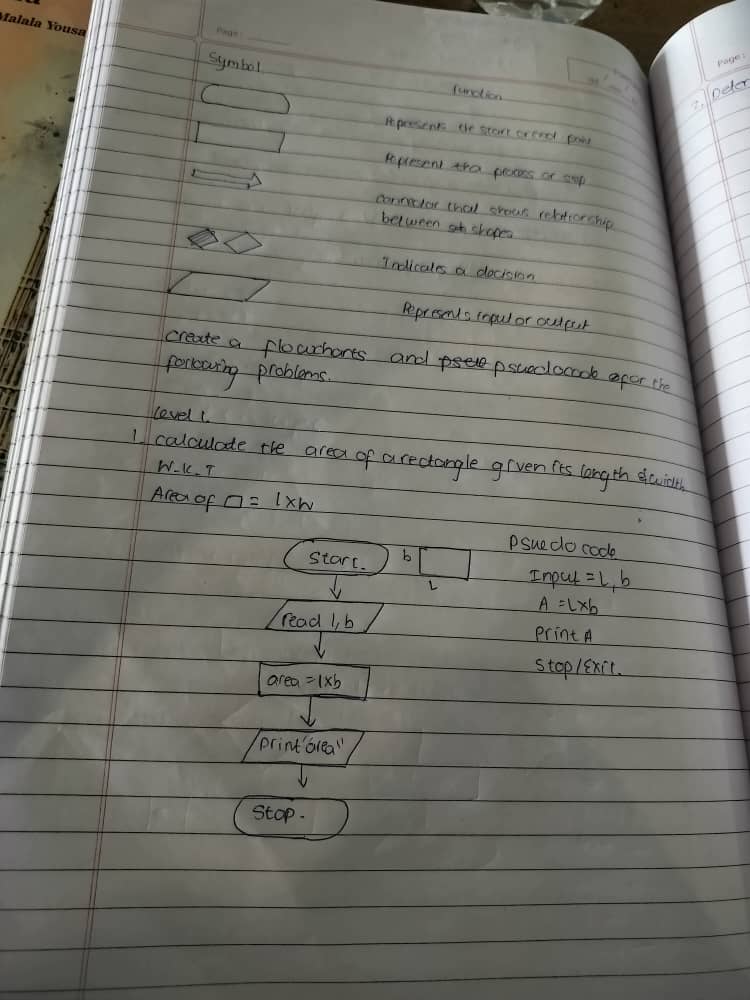 Malala Yousa
Page:
Page:
2. Deter
Symbol
function
Represents the start or end point
Represent tha process or step
connector that shows relationship
between shapes
Indicates a decision
Represents input or output
create a flowcharts and psuedocode for the
following problems.
Level 1.
1. calculate the area of a rectangle given its length & width
W.K.T
Area of □ = l x w
Start.
read l, b
area = l x b
print "area"
Stop.
b
L
Psuedo code
Input = L, b
A = L x b
Print A
Stop / Exit.